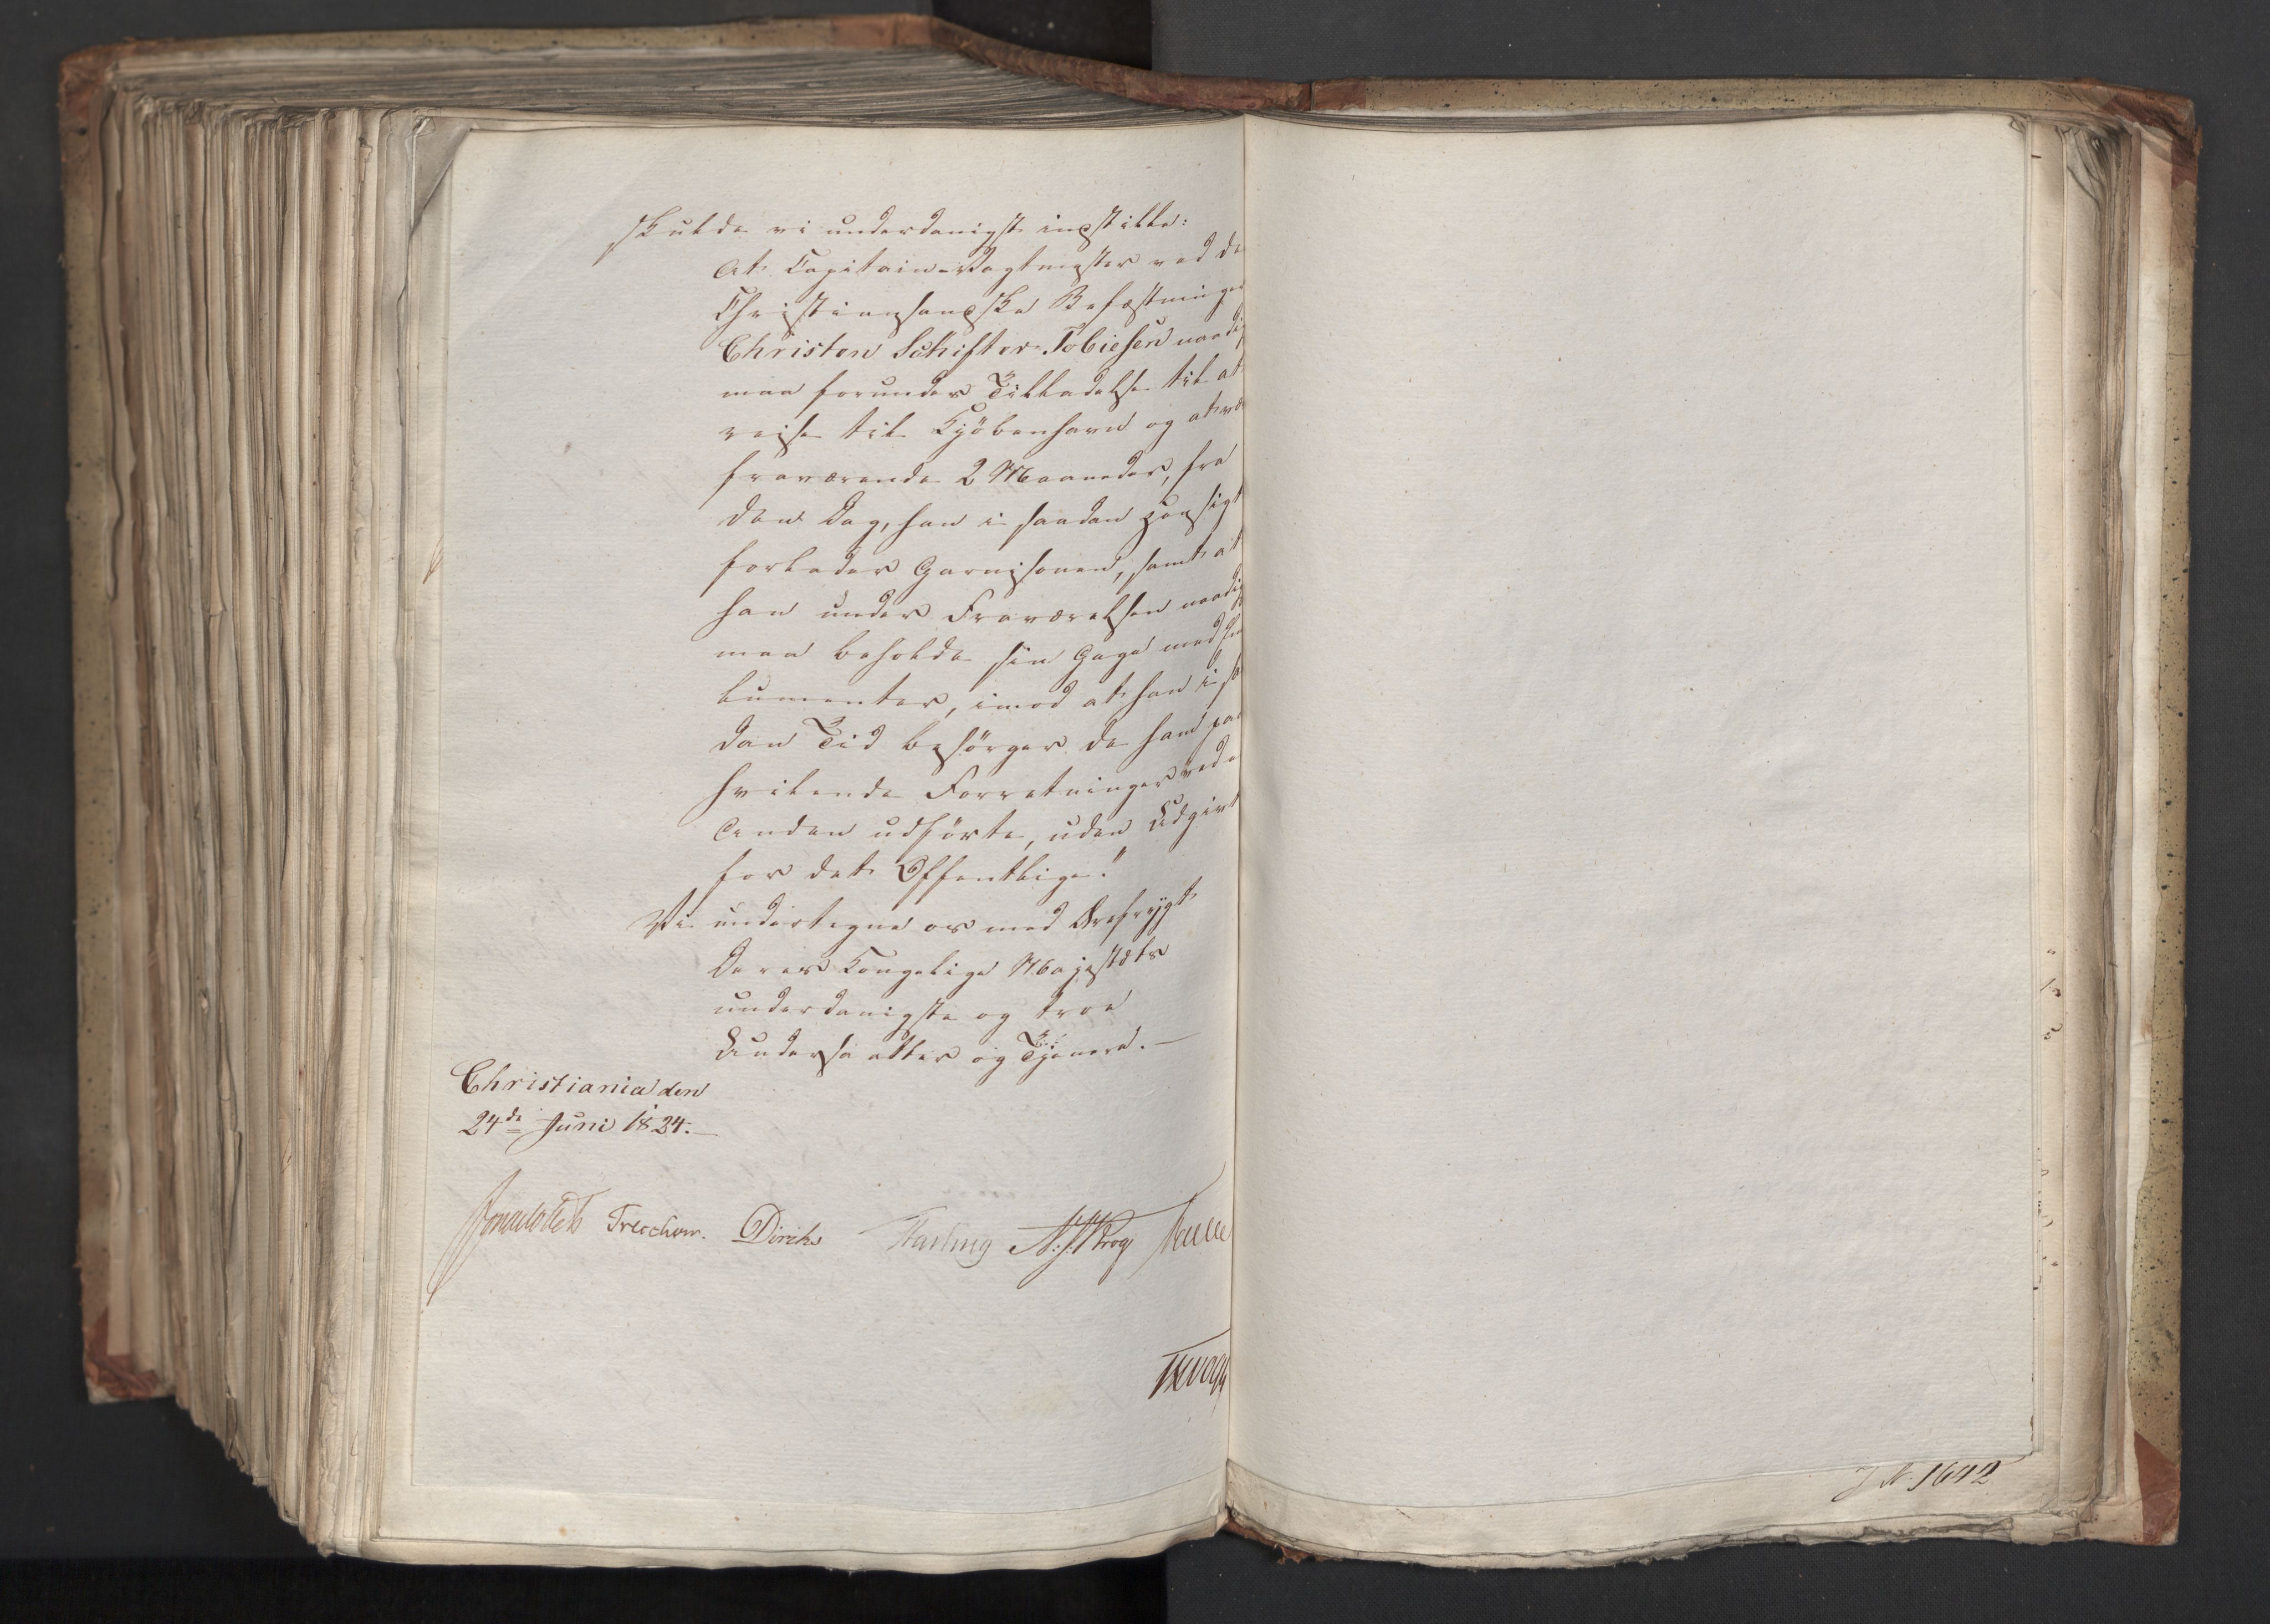 skulde vi underdanigst indstille:
At Capitain-Vagtmester ved de
Christiansandske Befæstninger
Christen Schifter Tobiesen naadigst
maa forundes Tilladelse til at
reise til Kjöbenhavn og at være
fraværende 2 Maaneder, fra
den Dag, han i saadan Hensigt
forlader Garnisonen, samt at
han under Fraværelsen naadigst
maa beholde sin Gage med Emo-
lumenter, imod at han i saa-
dan Tid besörger de ham paa-
hvilende Forretninger
udförte, uden Udgivt
for det Offentlige."
Vi undertegne os med Ærefrygt
Deres Kongelige Majestæts
underdanigste og troe
Undersaatter og Tjenere.—
Christiania den
24de Juni 1824.—
Treschow. Diriks N. J. Krog
J N. 1642